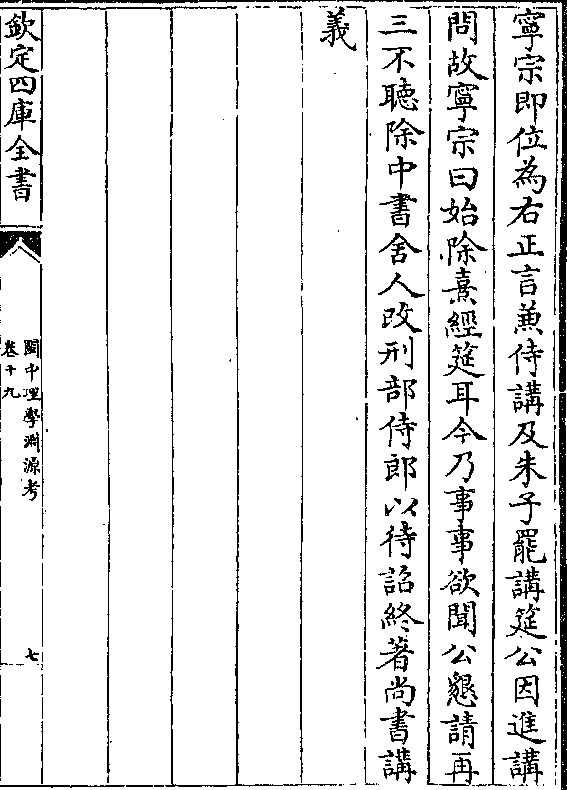 寧宗即位為右正言兼侍講及朱子罷講筵公因進講
問故寧宗曰始除熹經筵耳今乃事事欲聞公懇請再
三不聽除中書舍人改刑部侍郎以待詔終著尚書講
義
欽定四庫全書
閩中理學淵源考
卷十九
七